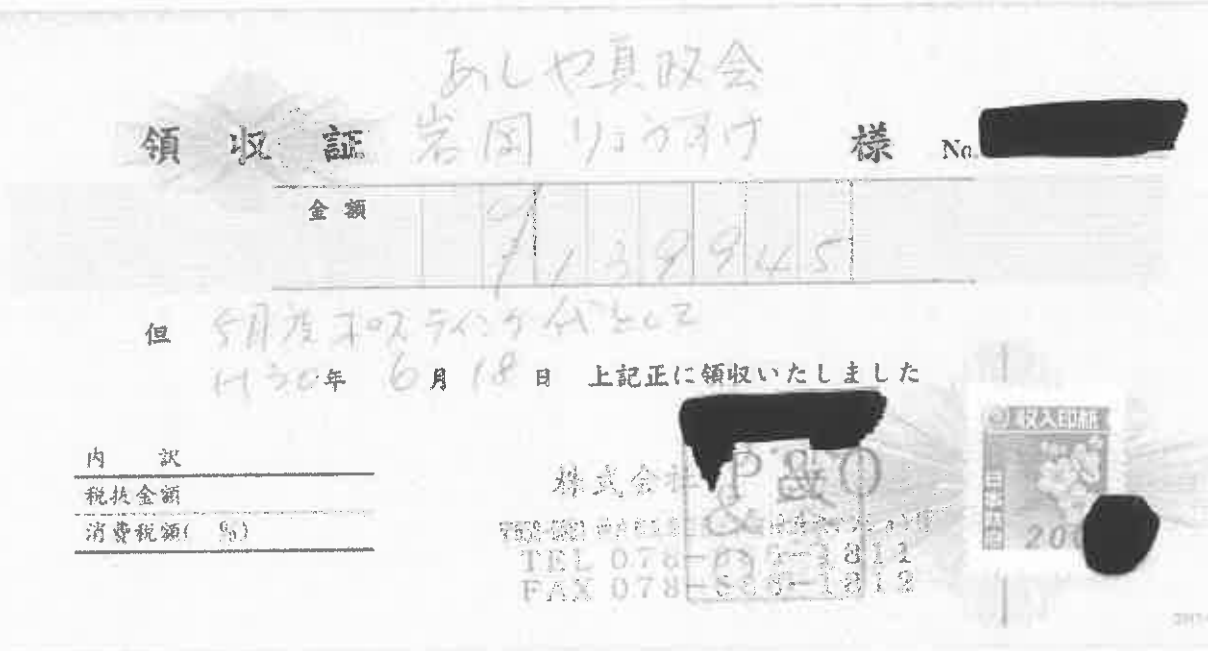 あしや真政会
領収証 岩岡りょうすけ 様 No.
金額
138945
但 5月度ポスティング代として
H30年 6月 18日 上記正に領収いたしました
内 訳
税抜金額
消費税額( %)
株式会社 P&O
TEL 078- 1811
FAX 078- 1812
収入印紙
200